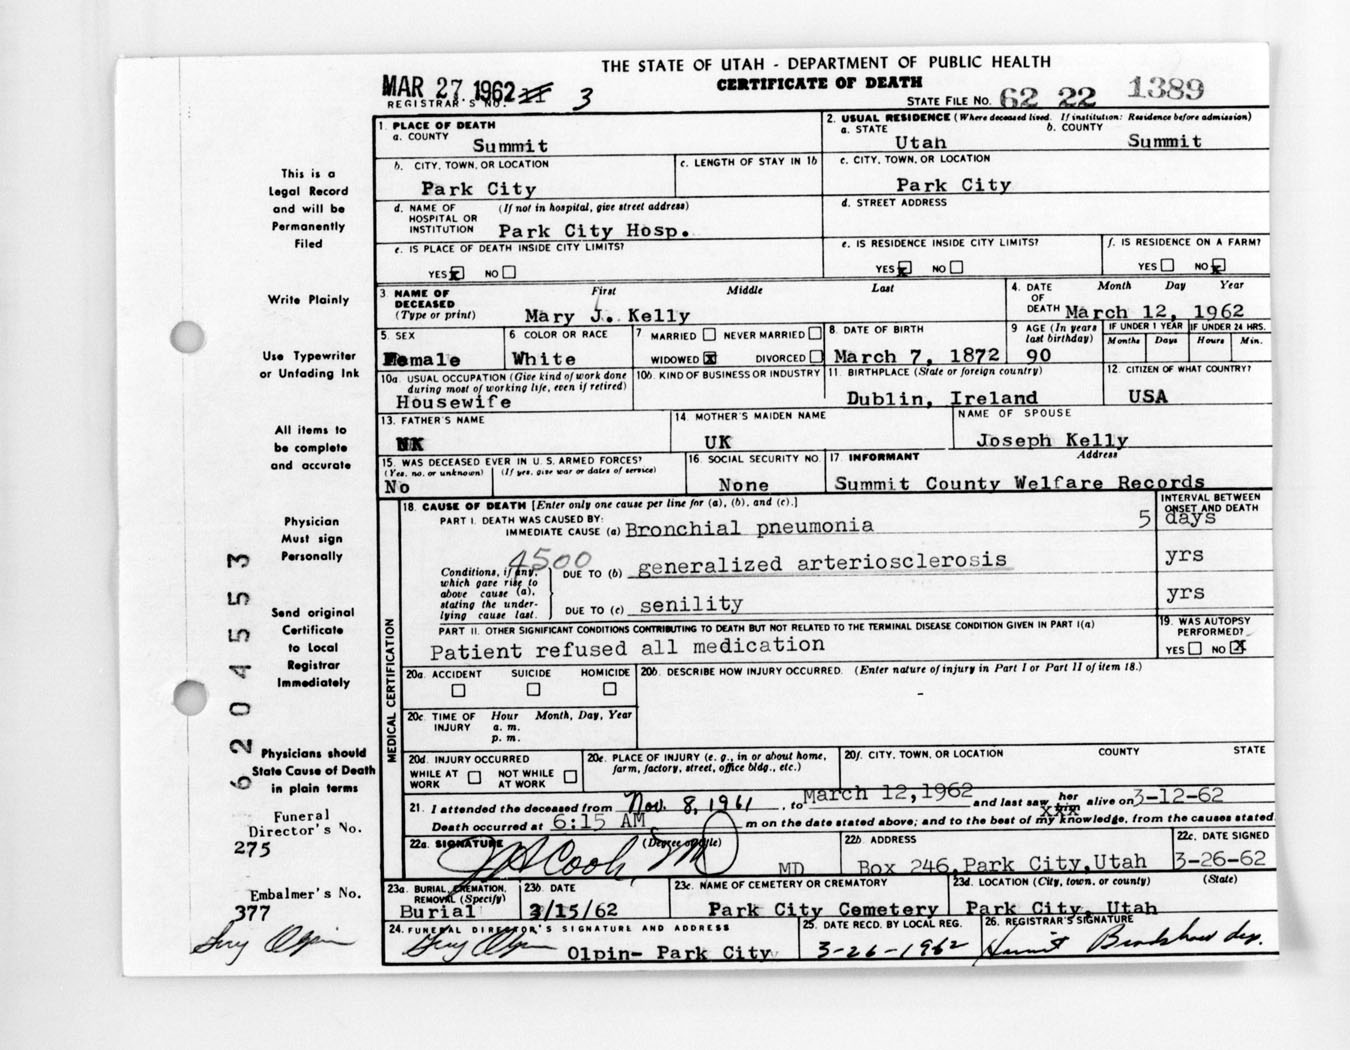 THE STATE OF UTAH - DEPARTMENT OF PUBLIC HEALTH
CERTIFICATE OF DEATH
MAR 27 1962
REGISTRAR'S NO. 3
STATE FILE NO. 62 22 1389
1. PLACE OF DEATH
a. COUNTY
Summit
2. USUAL RESIDENCE (Where deceased lived. If institution: Residence before admission)
a. STATE b. COUNTY
Utah Summit
b. CITY, TOWN, OR LOCATION
Park City
c. LENGTH OF STAY IN 1b
c. CITY, TOWN, OR LOCATION
Park City
d. NAME OF (If not in hospital, give street address)
HOSPITAL OR
INSTITUTION Park City Hosp.
d. STREET ADDRESS
e. IS PLACE OF DEATH INSIDE CITY LIMITS?
YES x NO
e. IS RESIDENCE INSIDE CITY LIMITS?
YES x NO
f. IS RESIDENCE ON A FARM?
YES NO x
3. NAME OF DECEASED (Type or print)
First Middle Last
Mary J. Kelly
4. DATE OF DEATH Month Day Year
March 12, 1962
5. SEX
Female
6 COLOR OR RACE
White
7 MARRIED NEVER MARRIED
WIDOWED x DIVORCED
8. DATE OF BIRTH
March 7, 1872
9 AGE (In years last birthday)
90
IF UNDER 1 YEAR IF UNDER 24 HRS.
Months Days Hours Min.
10a. USUAL OCCUPATION (Give kind of work done
during most of working life, even if retired)
Housewife
10b. KIND OF BUSINESS OR INDUSTRY
11. BIRTHPLACE (State or foreign country)
Dublin, Ireland
12. CITIZEN OF WHAT COUNTRY?
USA
13. FATHER'S NAME
UK
14. MOTHER'S MAIDEN NAME
UK
NAME OF SPOUSE
Joseph Kelly
15. WAS DECEASED EVER IN U. S. ARMED FORCES?
(Yes, no, or unknown) (If yes, give war or dates of service)
No
16. SOCIAL SECURITY NO.
None
17. INFORMANT Address
Summit County Welfare Records
MEDICAL CERTIFICATION
18. CAUSE OF DEATH [Enter only one cause per line for (a), (b), and (c).]
INTERVAL BETWEEN
ONSET AND DEATH
PART I. DEATH WAS CAUSED BY:
IMMEDIATE CAUSE (a) Bronchial pneumonia 5 days
4500
Conditions, if any,
which gave rise to
above cause (a),
stating the under-
lying cause last.
DUE TO (b) generalized arteriosclerosis yrs
DUE TO (c) senility yrs
PART II. OTHER SIGNIFICANT CONDITIONS CONTRIBUTING TO DEATH BUT NOT RELATED TO THE TERMINAL DISEASE CONDITION GIVEN IN PART I(a)
Patient refused all medication
19. WAS AUTOPSY
PERFORMED?
YES NO X
20a. ACCIDENT SUICIDE HOMICIDE
20b. DESCRIBE HOW INJURY OCCURRED. (Enter nature of injury in Part I or Part II of item 18.)
-
20c. TIME OF INJURY Hour Month, Day, Year
a. m.
p. m.
20d. INJURY OCCURRED
WHILE AT WORK NOT WHILE AT WORK
20e. PLACE OF INJURY (e. g., in or about home,
farm, factory, street, office bldg., etc.)
20f. CITY, TOWN, OR LOCATION COUNTY STATE
21. I attended the deceased from Nov. 8, 1961, to March 12, 1962 and last saw her him xxx alive on 3-12-62
Death occurred at 6:15 AM m on the date stated above; and to the best of my knowledge, from the causes stated.
22a. SIGNATURE (Degree or title)
Cook, MD
MD
22b. ADDRESS
Box 246, Park City, Utah
22c. DATE SIGNED
3-26-62
23a. BURIAL, CREMATION,
REMOVAL (Specify)
Burial
23b. DATE
3/15/62
23c. NAME OF CEMETERY OR CREMATORY
Park City Cemetery
23d. LOCATION (City, town, or county) (State)
Park City, Utah
24. FUNERAL DIRECTOR'S SIGNATURE AND ADDRESS
Olpin
Olpin- Park City
25. DATE RECD. BY LOCAL REG.
3-26-1962
26. REGISTRAR'S SIGNATURE
Bradshaw dep.
This is a
Legal Record
and will be
Permanently
Filed
Write Plainly
Use Typewriter
or Unfading Ink
All items to
be complete
and accurate
Physician
Must sign
Personally
Send original
Certificate
to Local
Registrar
Immediately
Physicians should
State Cause of Death
in plain terms
Funeral
Director's No.
275
Embalmer's No.
377
Olpin
6204553